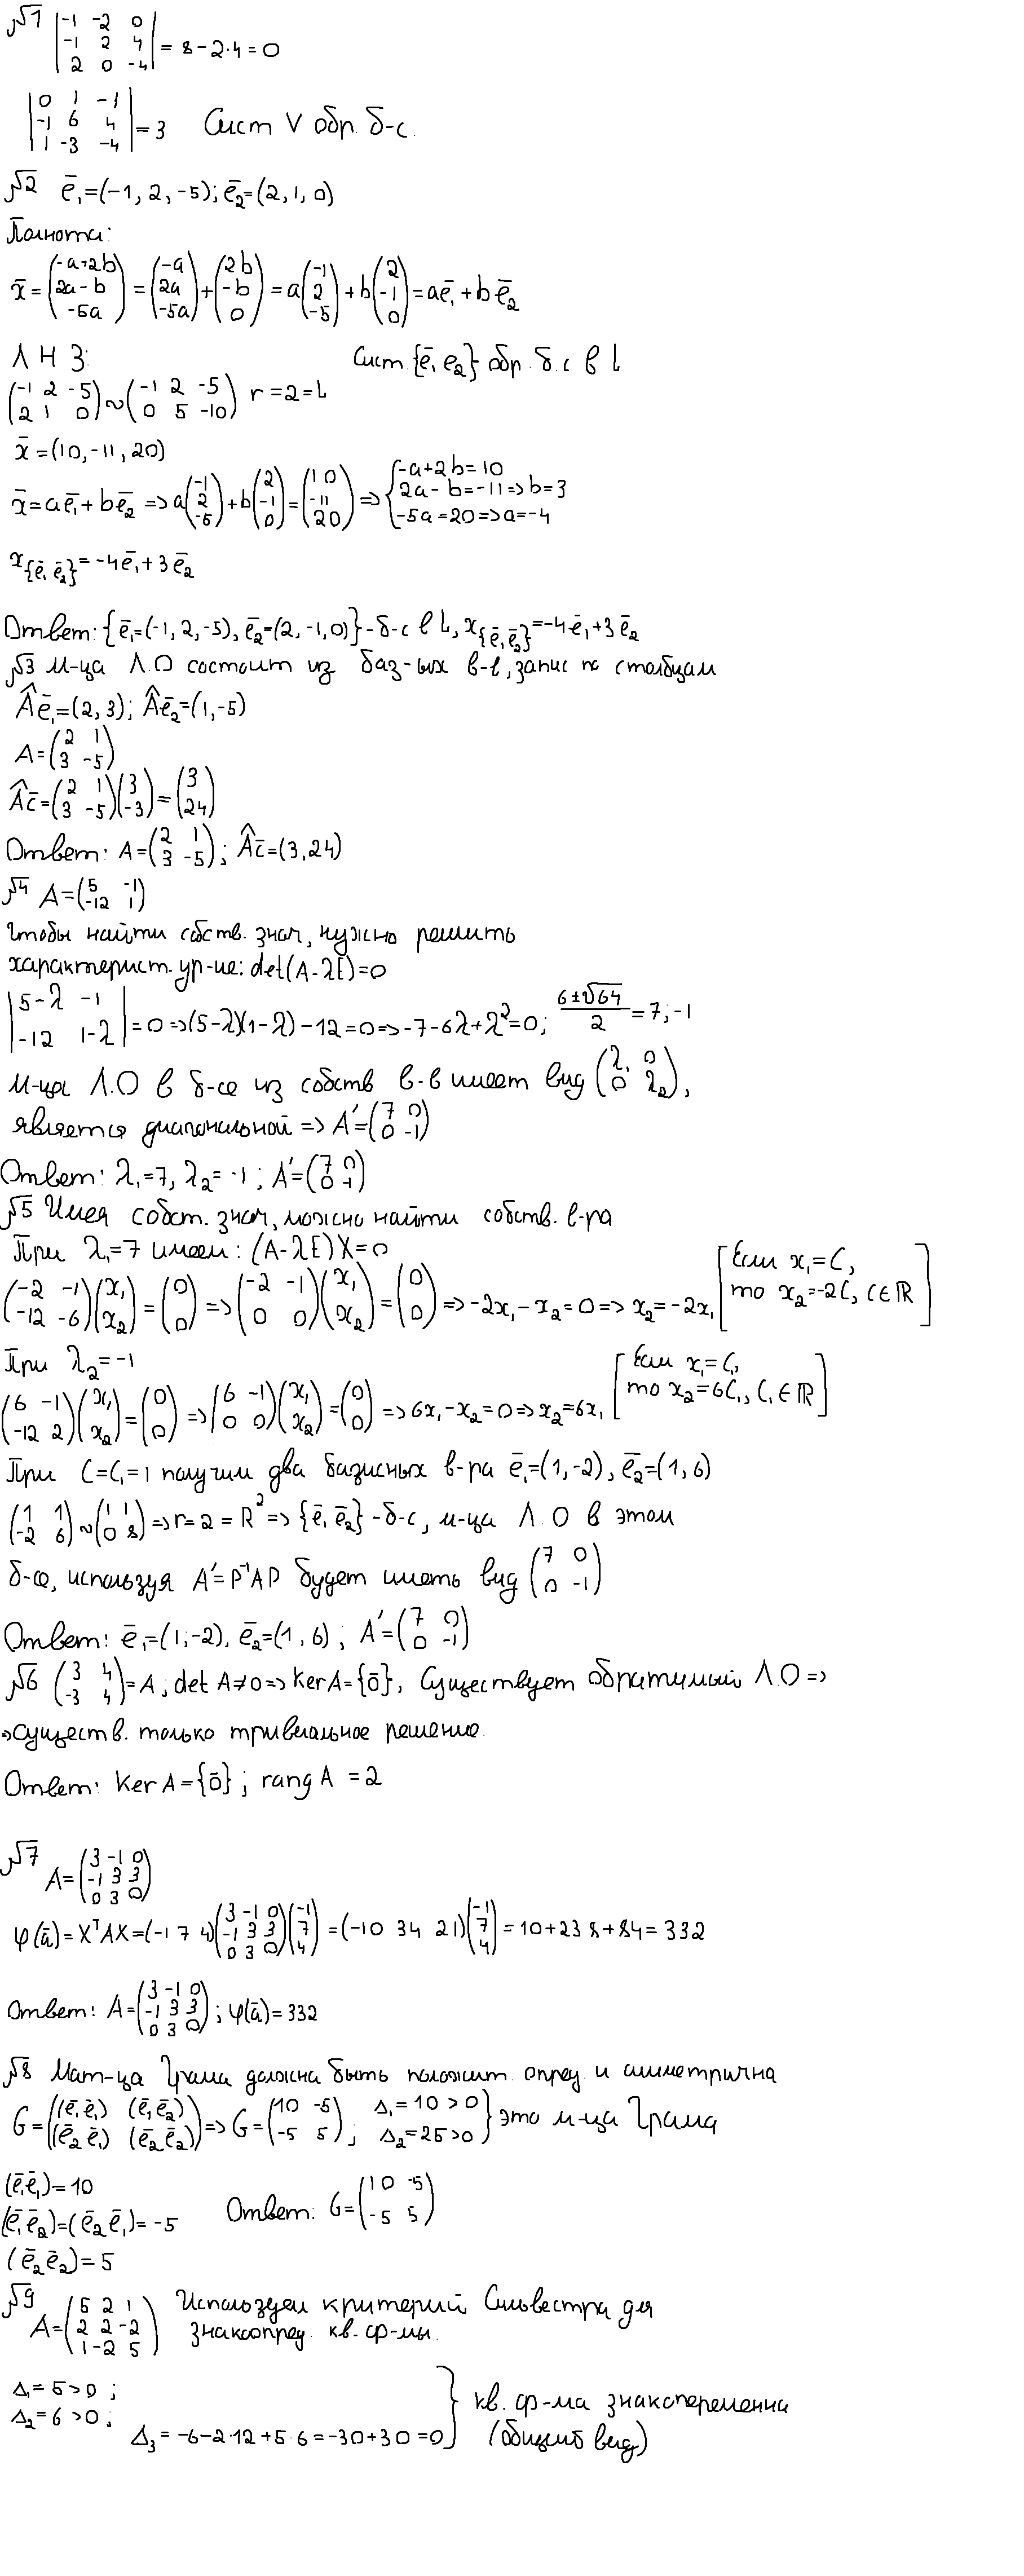 №1 |-1 -2 0; -1 2 4; 2 0 -4| = 8-2·4=0
|0 1 -1; -1 6 4; 1 -3 -4| = 3 Сист V обр. б-с.
№2 ē₁=(-1, 2, -5); ē₂=(2, 1, 0)
Полнота:
x̄=(-a+2b; 2a-b; -5a) = (-a; 2a; -5a)+(2b; -b; 0) = a(-1; 2; -5)+b(2; -1; 0)=aē₁+bē₂
ЛНЗ: Сист. {ē₁ e₂} обр. б.с в L
(-1 2 -5; 2 1 0)~(-1 2 -5; 0 5 -10) r=2=L
x̄=(10,-11,20)
x̄=aē₁+bē₂ => a(-1; 2; -5)+b(2; -1; 0)=(10; -11; 20) => {-a+2b=10; 2a-b=-11=>b=3; -5a=20=>a=-4
x{ē₁ ē₂}=-4ē₁+3ē₂
Ответ: {ē₁=(-1,2,-5), ē₂=(2,-1,0)}-б-с в L, x{ē₁ē₂}=-4ē₁+3ē₂
№3 М-ца Л.О состоит из баз-ых в-в, запис по столбцам
Âē₁=(2,3); Âē₂=(1,-5)
A=(2 1; 3 -5)
Âc̄=(2 1; 3 -5)(3; -3)=(3; 24)
Ответ: A=(2 1; 3 -5); Âc̄=(3,24)
№4 A=(5 -1; -12 1)
Чтобы найти собств. знач, нужно решить
характерист. ур-ие: det(A-λE)=0
|5-λ -1; -12 1-λ|=0=>(5-λ)(1-λ)-12=0=>-7-6λ+λ²=0; (6±√64)/2=7;-1
М-ца Л.О в б-се из собств в-в имеет вид (λ₁ 0; 0 λ₂),
является диагональной => A'=(7 0; 0 -1)
Ответ: λ₁=7, λ₂=-1; A'=(7 0; 0 -1)
№5 Имея собст. знач, можно найти собств. в-ра
При λ₁=7 имеем: (A-λE)X=0
(-2 -1; -12 -6)(x₁; x₂)=(0; 0)=>(-2 -1; 0 0)(x₁; x₂)=(0; 0)=>-2x₁-x₂=0=>x₂=-2x₁ [Если x₁=C, то x₂=-2C, C∈ℝ]
При λ₂=-1
(6 -1; -12 2)(x₁; x₂)=(0; 0)=>(6 -1; 0 0)(x₁; x₂)=(0; 0)=>6x₁-x₂=0=>x₂=6x₁ [Если x₁=C₁, то x₂=6C₁, C₁∈ℝ]
При C=C₁=1 получим два базисных в-ра ē₁=(1,-2), ē₂=(1,6)
(1 1; -2 6)~(1 1; 0 8)=>r=2=R²=>{ē₁ ē₂}-б-с, м-ца Л.О в этом
б-се, используя A'=P⁻¹AP будет иметь вид (7 0; 0 -1)
Ответ: ē₁=(1,-2), ē₂=(1,6); A'=(7 0; 0 -1)
№6 (3 4; -3 4)=A; det A≠0=>KerA={ō}, Существует обратимый Л.О =>
=>существ. только тривиальное решение.
Ответ: Ker A={ō}; rang A =2
№7 A=(3 -1 0; -1 3 3; 0 3 0)
φ(ā)=XᵀAX=(-1 7 4)(3 -1 0; -1 3 3; 0 3 0)(-1; 7; 4)=(-10 34 21)(-1; 7; 4)=10+238+84=332
Ответ: A=(3 -1 0; -1 3 3; 0 3 0); φ(ā)=332
№8 Мат-ца Грама должна быть положит. опред. и симметрична
G=((ē₁ē₁) (ē₁ē₂); (ē₂ē₁) (ē₂ē₂))=>G=(10 -5; -5 5); Δ₁=10>0 Δ₂=25>0} это м-ца Грама
(ē₁ē₁)=10
(ē₁ē₂)=(ē₂ē₁)=-5 Ответ: G=(10 -5; -5 5)
(ē₂ē₂)=5
№9 A=(5 2 1; 2 2 -2; 1 -2 5) Используем критерий Сильвестра для
знакоопред. кв. ф-мы.
Δ₁=5>0;
Δ₂=6>0;
Δ₃=-6-2·12+5·6=-30+30=0} кв. ф-ма знакопеременна
(общий вид)